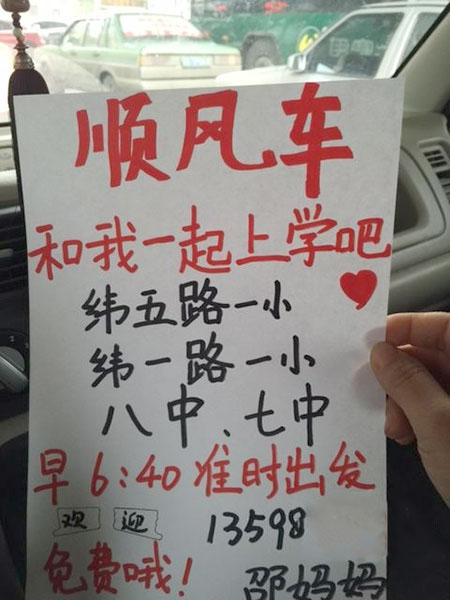 顺风车
和我一起上学吧
纬五路一小
纬一路一小
八中、七中
早6:40准时出发
欢迎 13598
免费哦! 邵妈妈